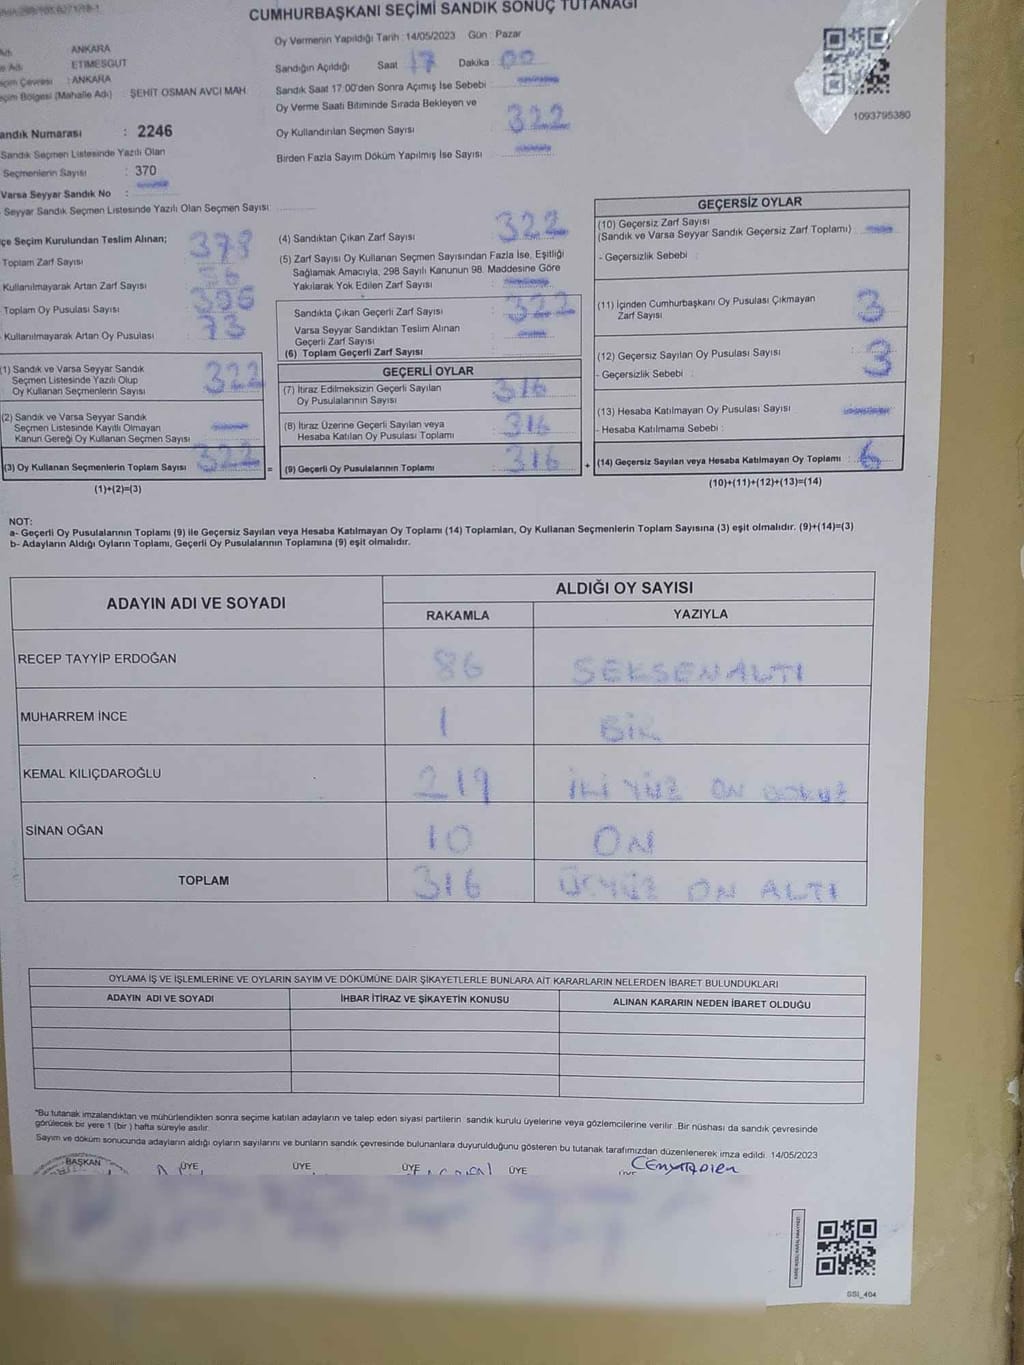 CUMHURBAŞKANI SEÇİMİ SANDIK SONUÇ TUTANAĞI
Oy Vermenin Yapıldığı Tarih : 14/05/2023 Gün : Pazar
ANKARA
ETIMESGUT
: ANKARA
(Mahalle Adı) ŞEHİT OSMAN AVCI MAH.
Sandığın Açıldığı Saat 17 Dakika : 00
Sandık Saat 17:00'den Sonra Açımış İse Sebebi :
Oy Verme Saati Bitiminde Sırada Bekleyen ve
Oy Kullandırılan Seçmen Sayısı : 322
Birden Fazla Sayım Döküm Yapılmış İse Sayısı
1093795380
Sandık Numarası : 2246
Sandık Seçmen Listesinde Yazılı Olan
Seçmenlerin Sayısı : 370
Varsa Seyyar Sandık No :
Seyyar Sandık Seçmen Listesinde Yazılı Olan Seçmen Sayısı:
Seçim Kurulundan Teslim Alınan;
Toplam Zarf Sayısı
Kullanılmayarak Artan Zarf Sayısı
Toplam Oy Pusulası Sayısı
Kullanılmayarak Artan Oy Pusulası : 73
(1) Sandık ve Varsa Seyyar Sandık
Seçmen Listesinde Yazılı Olup
Oy Kullanan Seçmenlerin Sayısı 322
(2) Sandık ve Varsa Seyyar Sandık
Seçmen Listesinde Kayıtlı Olmayan
Kanun Gereği Oy Kullanan Seçmen Sayısı
(3) Oy Kullanan Seçmenlerin Toplam Sayısı 322 =
(1)+(2)=(3)
(4) Sandıktan Çıkan Zarf Sayısı : 322
(5) Zarf Sayısı Oy Kullanan Seçmen Sayısından Fazla İse, Eşitliği
Sağlamak Amacıyla, 298 Sayılı Kanunun 98. Maddesine Göre
Yakılarak Yok Edilen Zarf Sayısı
Sandıkta Çıkan Geçerli Zarf Sayısı : 322
Varsa Seyyar Sandıktan Teslim Alınan
Geçerli Zarf Sayısı
(6) Toplam Geçerli Zarf Sayısı
GEÇERLİ OYLAR
(7) İtiraz Edilmeksizin Geçerli Sayılan
Oy Pusulalarının Sayısı : 316
(8) İtiraz Üzerine Geçerli Sayılan veya
Hesaba Katılan Oy Pusulası Toplamı : 316
(9) Geçerli Oy Pusulalarının Toplamı : 316 +
GEÇERSİZ OYLAR
(10) Geçersiz Zarf Sayısı
(Sandık ve Varsa Seyyar Sandık Geçersiz Zarf Toplamı)
- Geçersizlik Sebebi :
(11) İçinden Cumhurbaşkanı Oy Pusulası Çıkmayan
Zarf Sayısı 3
(12) Geçersiz Sayılan Oy Pusulası Sayısı : 3
- Geçersizlik Sebebi :
(13) Hesaba Katılmayan Oy Pusulası Sayısı
- Hesaba Katılmama Sebebi :
(14) Geçersiz Sayılan veya Hesaba Katılmayan Oy Toplamı : 6
(10)+(11)+(12)+(13)=(14)
NOT:
a- Geçerli Oy Pusulalarının Toplamı (9) ile Geçersiz Sayılan veya Hesaba Katılmayan Oy Toplamı (14) Toplamları, Oy Kullanan Seçmenlerin Toplam Sayısına (3) eşit olmalıdır. (9)+(14)=(3)
b- Adayların Aldığı Oyların Toplamı, Geçerli Oy Pusulalarının Toplamına (9) eşit olmalıdır.
ADAYIN ADI VE SOYADI ALDIĞI OY SAYISI
RAKAMLA YAZIYLA
RECEP TAYYİP ERDOĞAN 86 SEKSENALTI
MUHARREM İNCE 1 BİR
KEMAL KILIÇDAROĞLU 219 İKİ YÜZ ON DOKUZ
SİNAN OĞAN 10 ON
TOPLAM 316 ÜÇYÜZ ON ALTI
OYLAMA İŞ VE İŞLEMLERİNE VE OYLARIN SAYIM VE DÖKÜMÜNE DAİR ŞİKAYETLERLE BUNLARA AİT KARARLARIN NELERDEN İBARET BULUNDUKLARI
ADAYIN ADI VE SOYADI İHBAR İTİRAZ VE ŞİKAYETİN KONUSU ALINAN KARARIN NEDEN İBARET OLDUĞU
*Bu tutanak imzalandıktan ve mühürlendikten sonra seçime katılan adayların ve talep eden siyasi partilerin sandık kurulu üyelerine veya gözlemcilerine verilir. Bir nüshası da sandık çevresinde
görülecek bir yere 1 (bir ) hafta süreyle asılır.
Sayım ve döküm sonucunda adayların aldığı oyların sayılarını ve bunların sandık çevresinde bulunanlara duyurulduğunu gösteren bu tutanak tarafımızdan düzenlenerek imza edildi. 14/05/2023
BAŞKAN ÜYE ÜYE ÜYE ÜYE
SSI_404